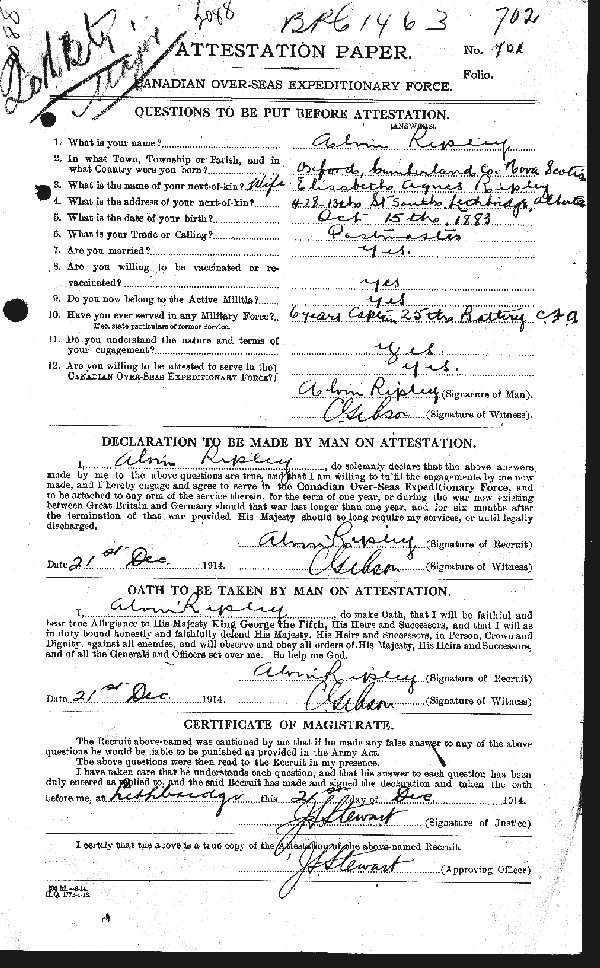 2088
BRC 1463
702
Major
ATTESTATION PAPER.
No. 702
Folio.
CANADIAN OVER-SEAS EXPEDITIONARY FORCE.
QUESTIONS TO BE PUT BEFORE ATTESTATION.
(ANSWERS).
1. What is your name? Alvin Ripley
2. In what Town, Township or Parish, and in
what Country were you born? Oxford, Cumberland Co. Nova Scotia
3. What is the name of your next-of-kin? Wife Elisabeth Agnes Ripley
4. What is the address of your next-of-kin? 428 13th St South, Lethbridge, Alberta
5. What is the date of your birth? Oct 15th, 1883
6. What is your Trade or Calling? Postmaster
7. Are you married? Yes.
8. Are you willing to be vaccinated or re-
vaccinated? Yes
9. Do you now belong to the Active Militia? Yes
10. Have you ever served in any Military Force? 6 years Captain 25th Battery C.F.A
If so, state particulars of former Service.
11. Do you understand the nature and terms of
your engagement? Yes.
12. Are you willing to be attested to serve in the Yes.
CANADIAN OVER-SEAS EXPEDITIONARY FORCE?
Alvin Ripley (Signature of Man).
C Gibson (Signature of Witness).
DECLARATION TO BE MADE BY MAN ON ATTESTATION.
I, Alvin Ripley, do solemnly declare that the above answers
made by me to the above questions are true, and that I am willing to fulfil the engagements by me now
made, and I hereby engage and agree to serve in the Canadian Over-Seas Expeditionary Force, and
to be attached to any arm of the service therein, for the term of one year, or during the war now existing
between Great Britain and Germany should that war last longer than one year, and for six months after
the termination of that war provided His Majesty should so long require my services, or until legally
discharged.
Alvin Ripley (Signature of Recruit)
Date 21st Dec 1914. C Gibson (Signature of Witness)
OATH TO BE TAKEN BY MAN ON ATTESTATION.
I, Alvin Ripley, do make Oath, that I will be faithful and
bear true Allegiance to His Majesty King George the Fifth, His Heirs and Successors, and that I will as
in duty bound honestly and faithfully defend His Majesty, His Heirs and Successors, in Person, Crown and
Dignity, against all enemies, and will observe and obey all orders of His Majesty, His Heirs and Successors,
and of all the Generals and Officers set over me. So help me God.
Alvin Ripley (Signature of Recruit)
Date 21st Dec 1914. C Gibson (Signature of Witness)
CERTIFICATE OF MAGISTRATE.
The Recruit above-named was cautioned by me that if he made any false answer to any of the above
questions he would be liable to be punished as provided in the Army Act.
The above questions were then read to the Recruit in my presence.
I have taken care that he understands each question, and that his answer to each question has been
duly entered as replied to, and the said Recruit has made and signed the declaration and taken the oath
before me, at Lethbridge this 21st day of Dec 1914.
J Stewart (Signature of Justice)
I certify that the above is a true copy of the Attestation of the above-named Recruit.
J Stewart (Approving Officer)